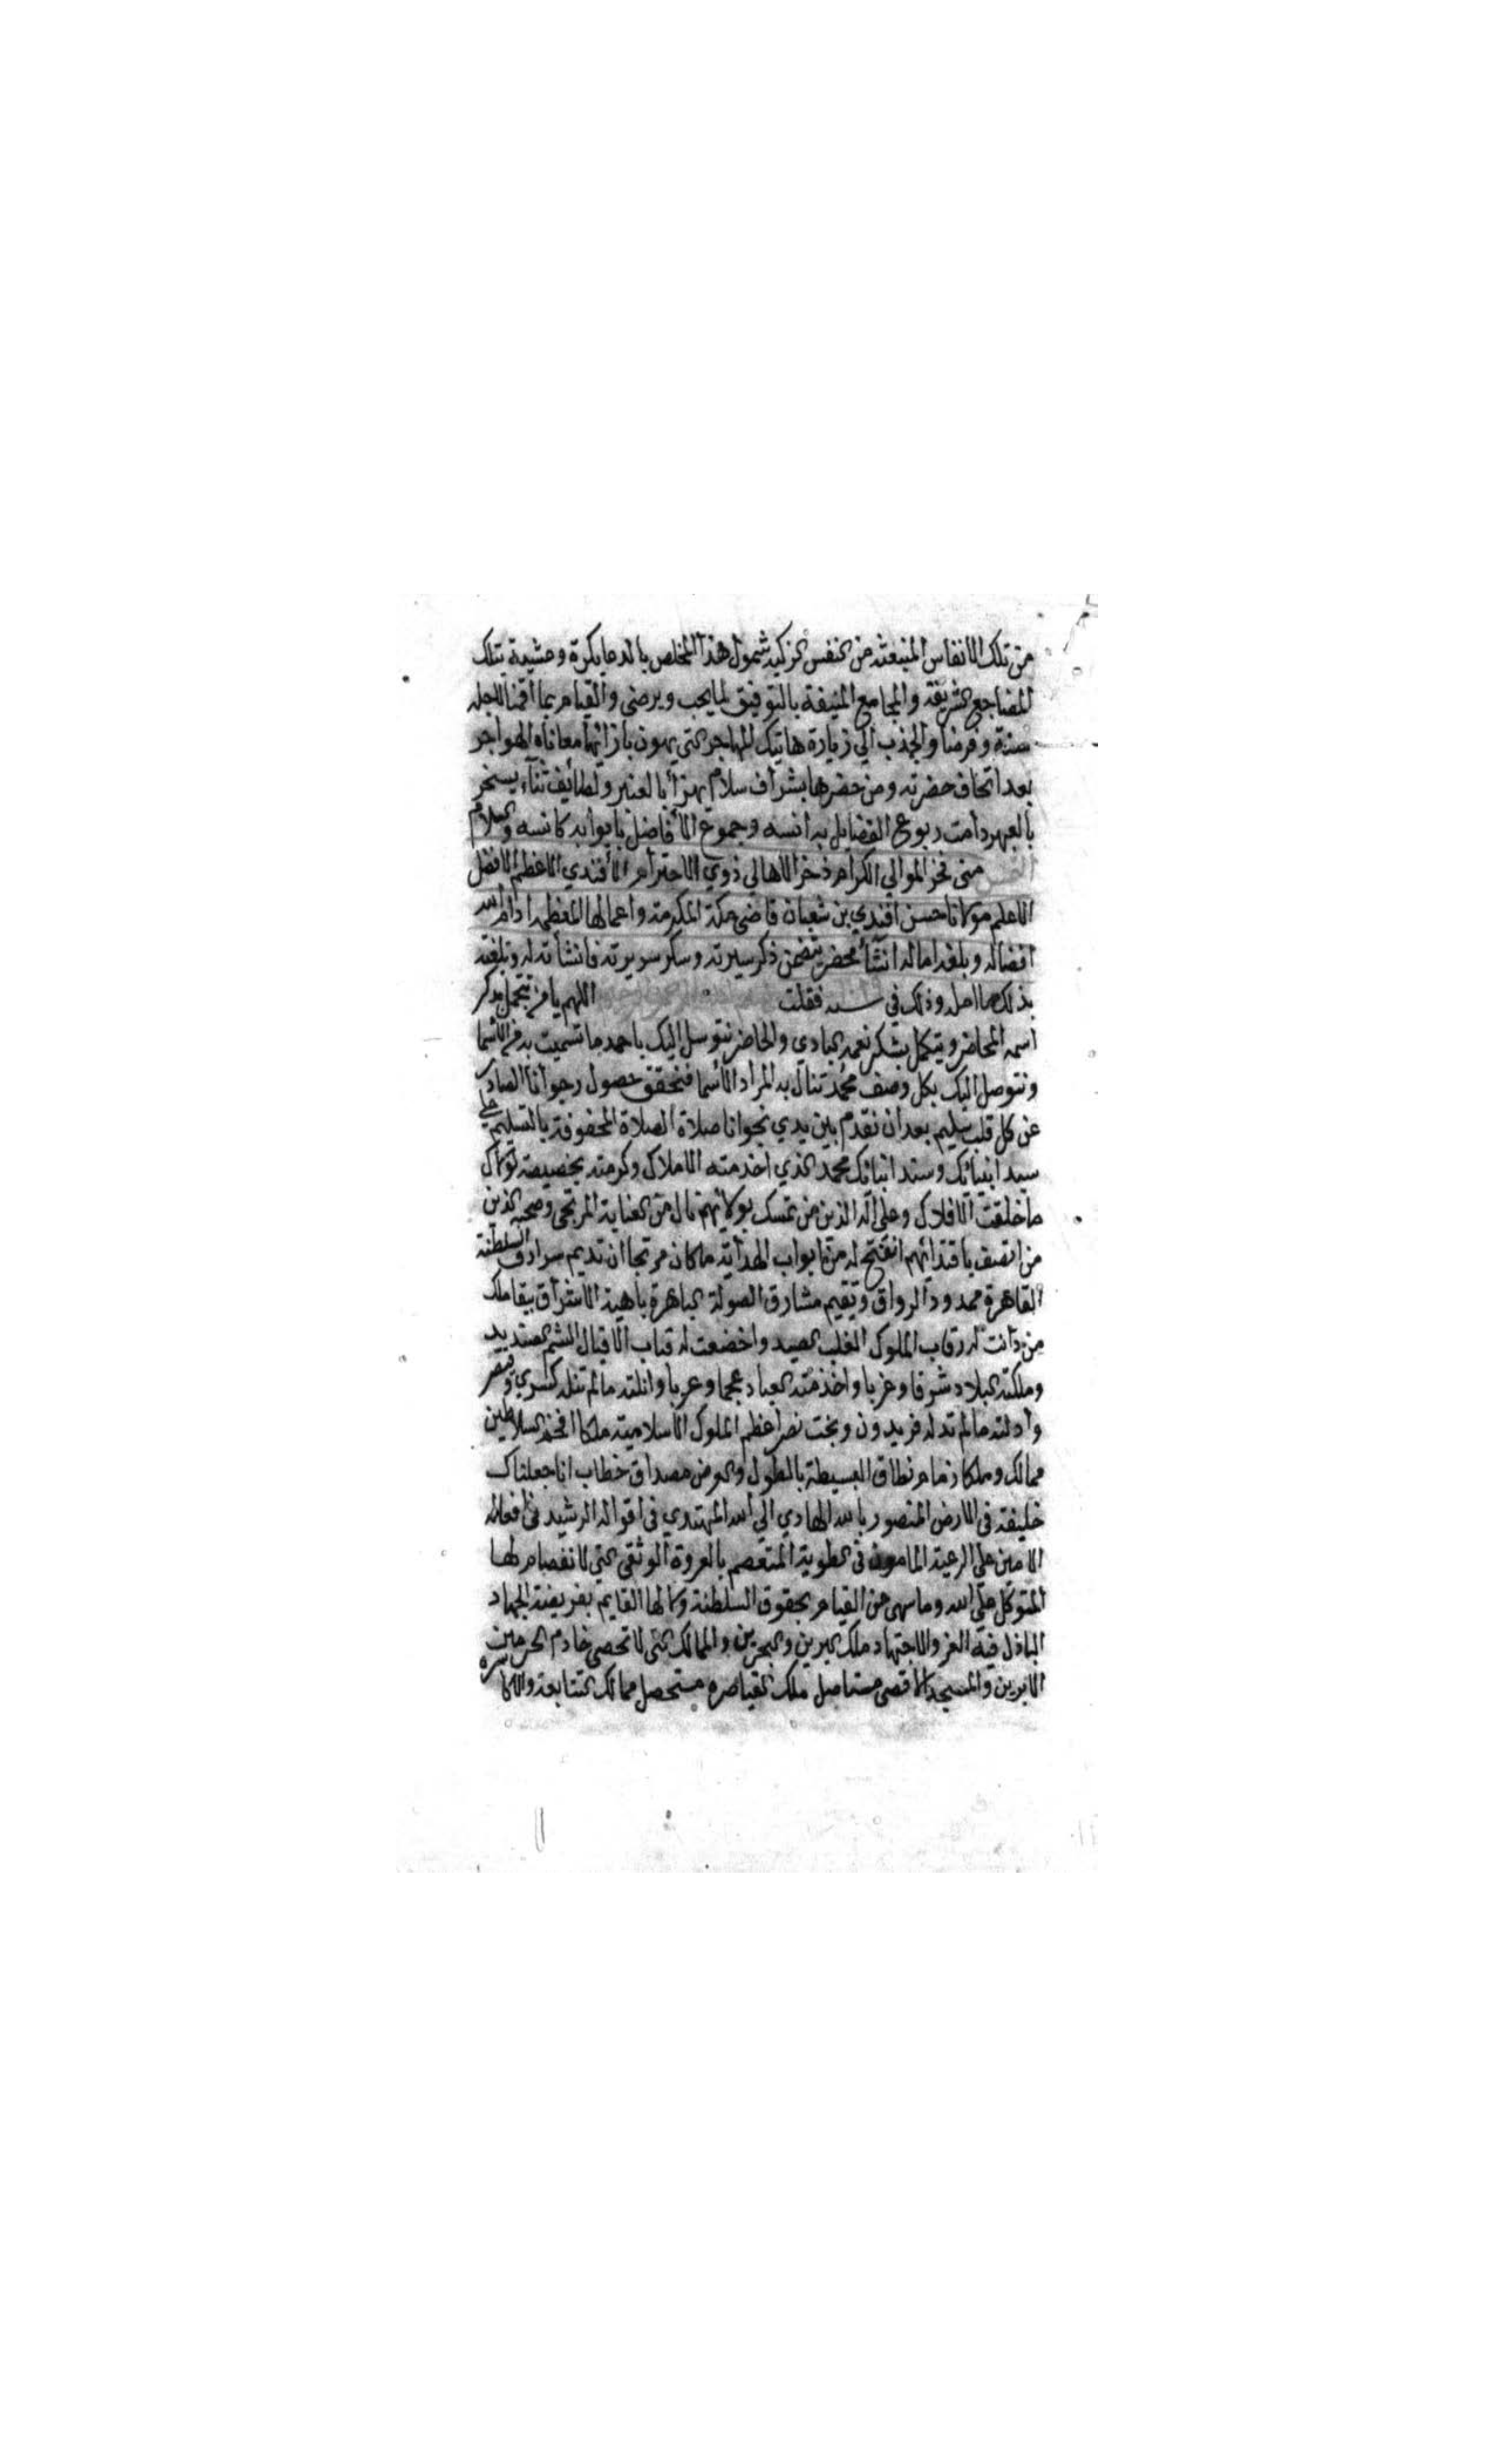 من تلك الانفاس المنبعثه من النفس الزكيه شمول هذا المخلص بالدعا بكرة وعشية بتلك
المضاجع الشريفة والمجامع المنيفة بالتوفيق لما يحب ويرضى والقيام بما اقمنا لاجله
سنة وفرضا والجذب الي زيارة هاتيك المهاجر التي يهون بازائها معاناه الهواجر
بعد اتحاف حضرته ومن حضرها بشرايف سلام يهزأ بالعنبر ولطائف ثناء يسخر
بالعبهر دامت ربوع الفضايل به انسه وجموع الافاضل بابوابه كانسه والسلام
التمس مني فخر الموالي الكرام ذخر الاهالي ذوي الاحترام الأفندي الاعظم الافضل
الاعلم مولانا حسن افندي بن شعبان قاضي مكة المكرمة واعمالها المعظمه ادام الله
افضاله وبلغه اماله انشأ محضر يتضمن ذكر سيرته وسكر سريرته فانشأته له وبلغته
بذلك ما امله وذلك في سنه فقلت اللهم يا من تتجمل بذكر
اسمه المحاضر ويتكمل بشكر نعمه البادي والحاضر نتوسل اليك باحمد ما تسميت به من الاسما
ونتوصل اليك بكل وصف محمد تنال به المراد الأسما فنحقق حصول رجوانا الصادر
عن كل قلب سليم بعد ان نقدم بين يدي نجوانا صلاة الصلاة المحفوفة بالتسليم علي
سيد انبيائك وسند انبيائك محمد الذي اخدمته الاملاك وكرمته بخصيصة لولاك
ما خلقت الافلاك وعلى اله الذين من تمسك بولائهم نال من العناية المرتجى وصحبه الذين
من اتصف باقتدائهم انفتح له من ابواب الهداية ماكان مرتجا ان تديم سرادق السلطنة
القاهرة ممدود الرواق وتقيم مشارق الصولة الباهرة باهية الاشراق ببقا ملك
من دانت له رقاب الملوك الغلب الصيد واخضعت له رقاب الاقيال الشم الصناديد
وملكته البلاد شرقا وغربا واخدمته العباد عجما وعربا وانلته مالم تنله كسري وقيصر
وادلته مالم تدله فريدون وبخت نصر اعظم الملوك الاسلامية ملكا افخم السلاطين
ممالك وملكا زمام نطاق البسيطة بالطول والعرض مصداق خطاب انا جعلناك
خليفة في الارض المنصور بالله الهادي الي الله المهتدي في اقواله الرشيد في افعاله
الامين علي الرعية المامون في الطوية المتعصم بالعروة الوثقى التي لا انفصام لها
المتوكل علي الله وما سهى عن القيام بحقوق السلطنة وكما لها القايم بفريضة الجهاد
الباذل فيه العز والاجتهاد ملك البرين والبحرين والممالك التي لا تحصى خادم الحرمين
الابرين والمسجد الاقصى مستاصل ملك القياصره مستحصل ممالك التتابعة والاكاسره